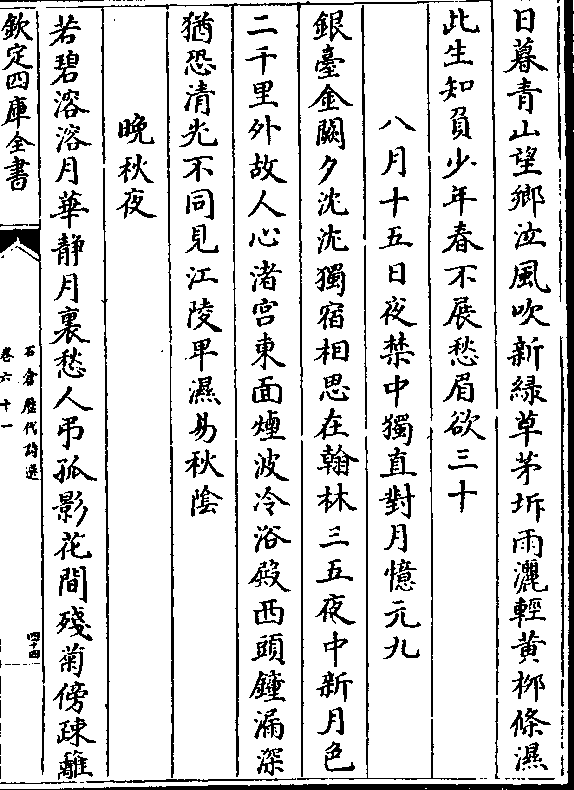 日暮青山望鄉泣風吹新緑草茅坼雨灑輕黄柳條濕
此生知負少年春不展愁眉欲三十
八月十五日夜禁中獨直對月憶元九
銀臺金闕夕沈沈獨宿相思在翰林三五夜中新月色
二千里外故人心渚宫東面煙波冷浴殿西頭鐘漏深
猶恐清光不同見江陵卑濕易秋隂
晚秋夜
若碧溶溶月華静月裏愁人弔孤影花間殘菊傍疎離
欽定四庫全書
石倉歴代詩選
卷六十一
四十四